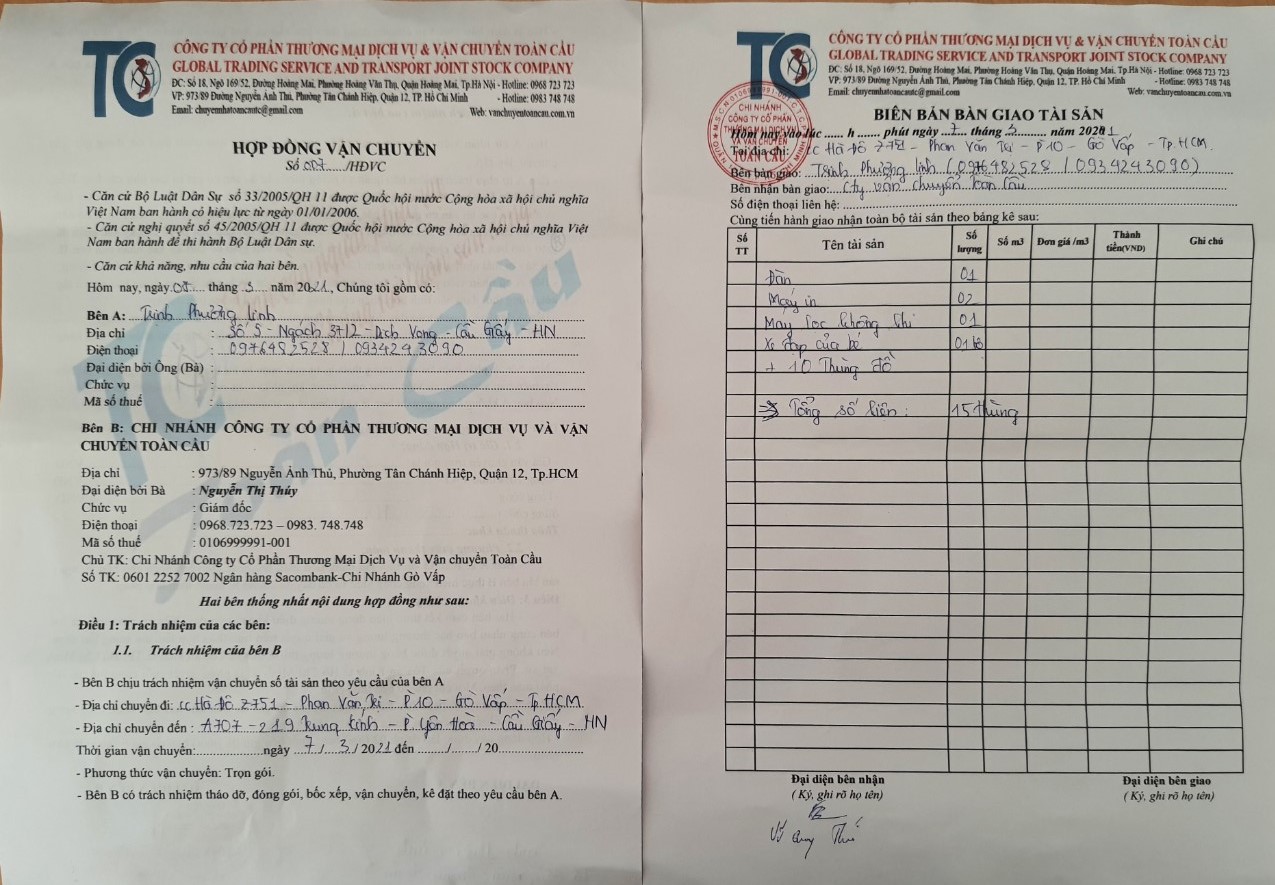 TC
CÔNG TY CỔ PHẦN THƯƠNG MẠI DỊCH VỤ & VẬN CHUYỂN TOÀN CẦU
GLOBAL TRADING SERVICE AND TRANSPORT JOINT STOCK COMPANY
ĐC: Số 18, Ngõ 169/52, Đường Hoàng Mai, Phường Hoàng Văn Thụ, Quận Hoàng Mai, Tp.Hà Nội - Hotline: 0968 723 723
VP: 973/89 Đường Nguyễn Ảnh Thủ, Phường Tân Chánh Hiệp, Quận 12, TP. Hồ Chí Minh - Hotline: 0983 748 748
Email: chuyennhatoancautc@gmail.com Web: vanchuyentoancau.com.vn
HỢP ĐỒNG VẬN CHUYỂN
Số 007....../HĐVC
- Căn cứ Bộ Luật Dân Sự số 33/2005/QH 11 được Quốc hội nước Cộng hòa xã hội chủ nghĩa
Việt Nam ban hành có hiệu lực từ ngày 01/01/2006.
- Căn cứ nghị quyết số 45/2005/QH 11 được Quốc hội nước Cộng hòa xã hội chủ nghĩa Việt
Nam ban hành để thi hành Bộ Luật Dân sự.
- Căn cứ khả năng, nhu cầu của hai bên.
Hôm nay, ngày 07.... tháng .3.... năm 2021, Chúng tôi gồm có:
Bên A: Trịnh Phương Linh
Địa chỉ : Số 5 - Ngách 37/2 - Dịch Vọng - Cầu Giấy - HN
Điện thoại : 0976482528 / 0934243090
Đại diện bởi Ông (Bà) :
Chức vụ :
Mã số thuế :
Bên B: CHI NHÁNH CÔNG TY CỔ PHẦN THƯƠNG MẠI DỊCH VỤ VÀ VẬN
CHUYỂN TOÀN CẦU
Địa chỉ : 973/89 Nguyễn Ảnh Thủ, Phường Tân Chánh Hiệp, Quận 12, Tp.HCM
Đại diện bởi Bà : Nguyễn Thị Thúy
Chức vụ : Giám đốc
Điện thoại : 0968.723.723 – 0983. 748.748
Mã số thuế : 0106999991-001
Chủ TK: Chi Nhánh Công ty Cổ Phần Thương Mại Dịch Vụ và Vận chuyển Toàn Cầu
Số TK: 0601 2252 7002 Ngân hàng Sacombank-Chi Nhánh Gò Vấp
Hai bên thống nhất nội dung hợp đồng như sau:
Điều 1: Trách nhiệm của các bên:
1.1. Trách nhiệm của bên B
- Bên B chịu trách nhiệm vận chuyển số tài sản theo yêu cầu của bên A
- Địa chỉ chuyển đi: CC Hà Đô Z751 - Phan Văn Trị - P10 - Gò Vấp - Tp.HCM
- Địa chỉ chuyển đến : A707 - 219 Trung Kính - P. Yên Hoà - Cầu Giấy - HN
Thời gian vận chuyển:..................ngày ...7/...3./ 2021 đến ......../......./ 20......................
- Phương thức vận chuyển: Trọn gói.
- Bên B có trách nhiệm tháo dỡ, đóng gói, bốc xếp, vận chuyển, kê đặt theo yêu cầu bên A.
Toàn Cầu ®
TC
CÔNG TY CỔ PHẦN THƯƠNG MẠI DỊCH VỤ & VẬN CHUYỂN TOÀN CẦU
GLOBAL TRADING SERVICE AND TRANSPORT JOINT STOCK COMPANY
ĐC: Số 18, Ngõ 169/52, Đường Hoàng Mai, Phường Hoàng Văn Thụ, Quận Hoàng Mai, Tp.Hà Nội - Hotline: 0968 723 723
VP: 973/89 Đường Nguyễn Ảnh Thủ, Phường Tân Chánh Hiệp, Quận 12, TP. Hồ Chí Minh - Hotline: 0983 748 748
Email: chuyennhatoancautc@gmail.com Web: vanchuyentoancau.com.vn
CHI NHÁNH
CÔNG TY CỔ PHẦN
THƯƠNG MẠI DỊCH VỤ
VÀ VẬN CHUYỂN
TOÀN CẦU
BIÊN BẢN BÀN GIAO TÀI SẢN
Hôm nay vào lúc ...... h ...... phút ngày ..7... tháng .3.......... năm 2021
Tại địa chỉ: CC Hà Đô Z751 - Phan Văn Trị - P10 - Gò Vấp - Tp.HCM.
Bên bàn giao: Trịnh Phương Linh (0976482528 / 0934243090)
Bên nhận bàn giao: Cty vận chuyển Toàn Cầu
Số điện thoại liên hệ:
Cùng tiến hành giao nhận toàn bộ tài sản theo bảng kê sau:
Số TT Tên tài sản Số lượng Số m3 Đơn giá /m3 Thành tiền(VNĐ) Ghi chú
Đàn 01
Máy in 02
Máy lọc không khí 01
Xe đạp của bé 01
+ 10 Thùng đồ
=> Tổng số kiện: 15 thùng
Đại diện bên nhận Đại diện bên giao
( Ký, ghi rõ họ tên) ( Ký, ghi rõ họ tên)